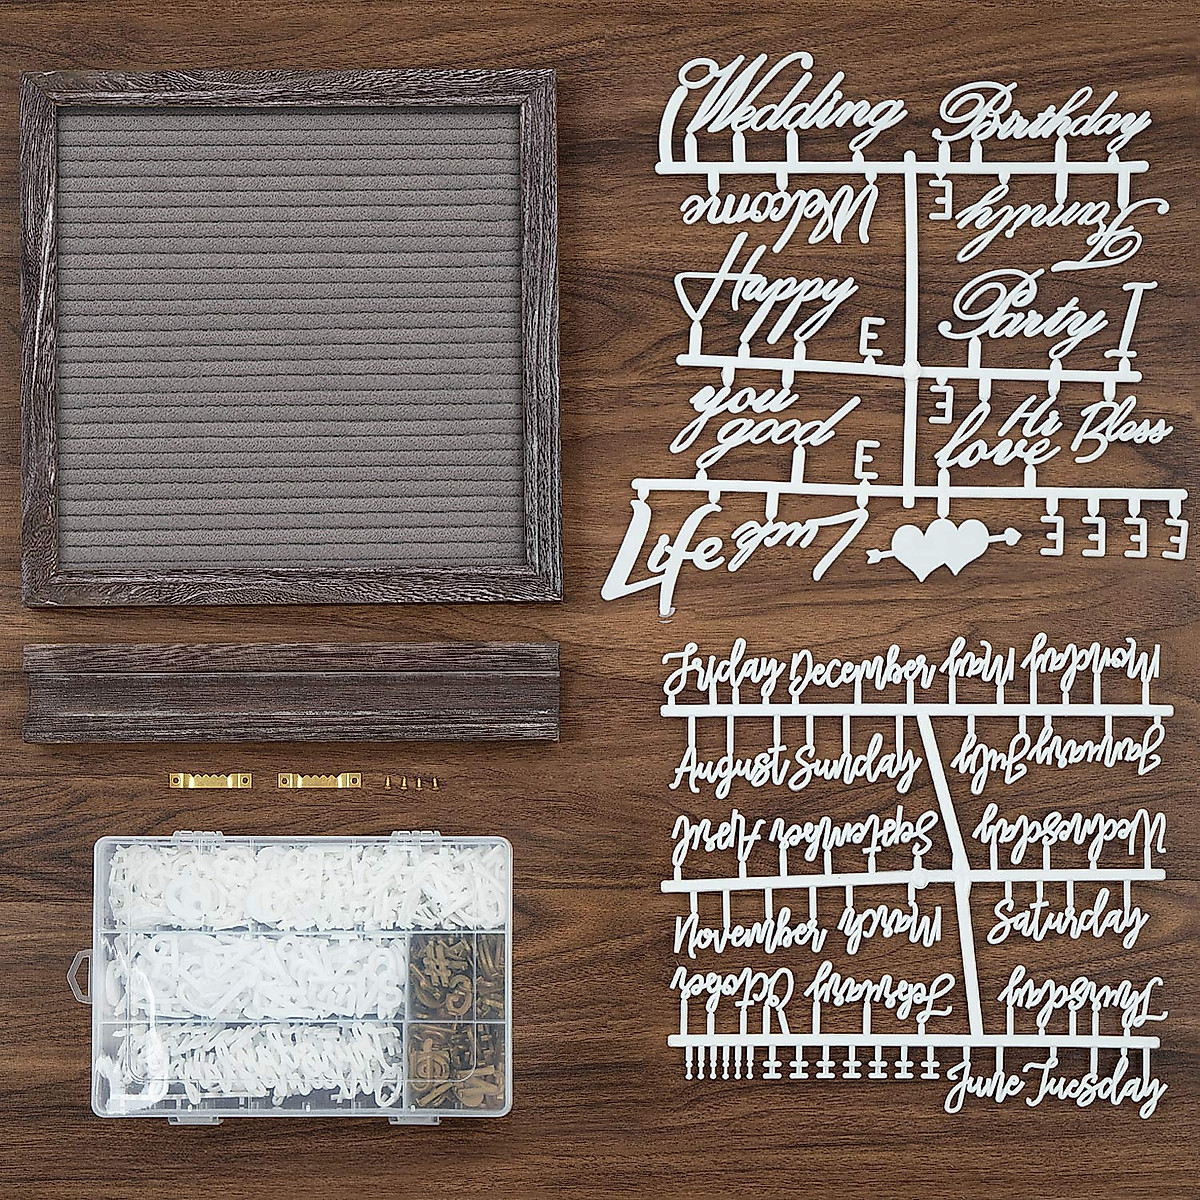 Wedding Birthday
Welcome E Family
Happy E Party I
you E Hi Bless
good E love
Life Luck E E E E
Friday December May Monday
August Sunday July January
April September Wednesday
November March Saturday
October February Thursday
I I I I I I I
June Tuesday